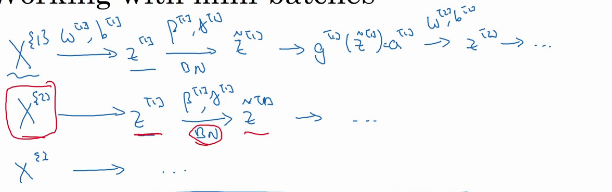 Working with mini-batches
X^{1} W^[1], b^[1] → z^[1] β^[1], γ^[1] → BN z̃^[1] → g^[1](z̃^[1]) = a^[1] → W^[2], b^[2] z^[2] → ...
X^{2} → z^[1] β^[1], γ^[1] → BN z̃^[1] → ...
X^{} → ...